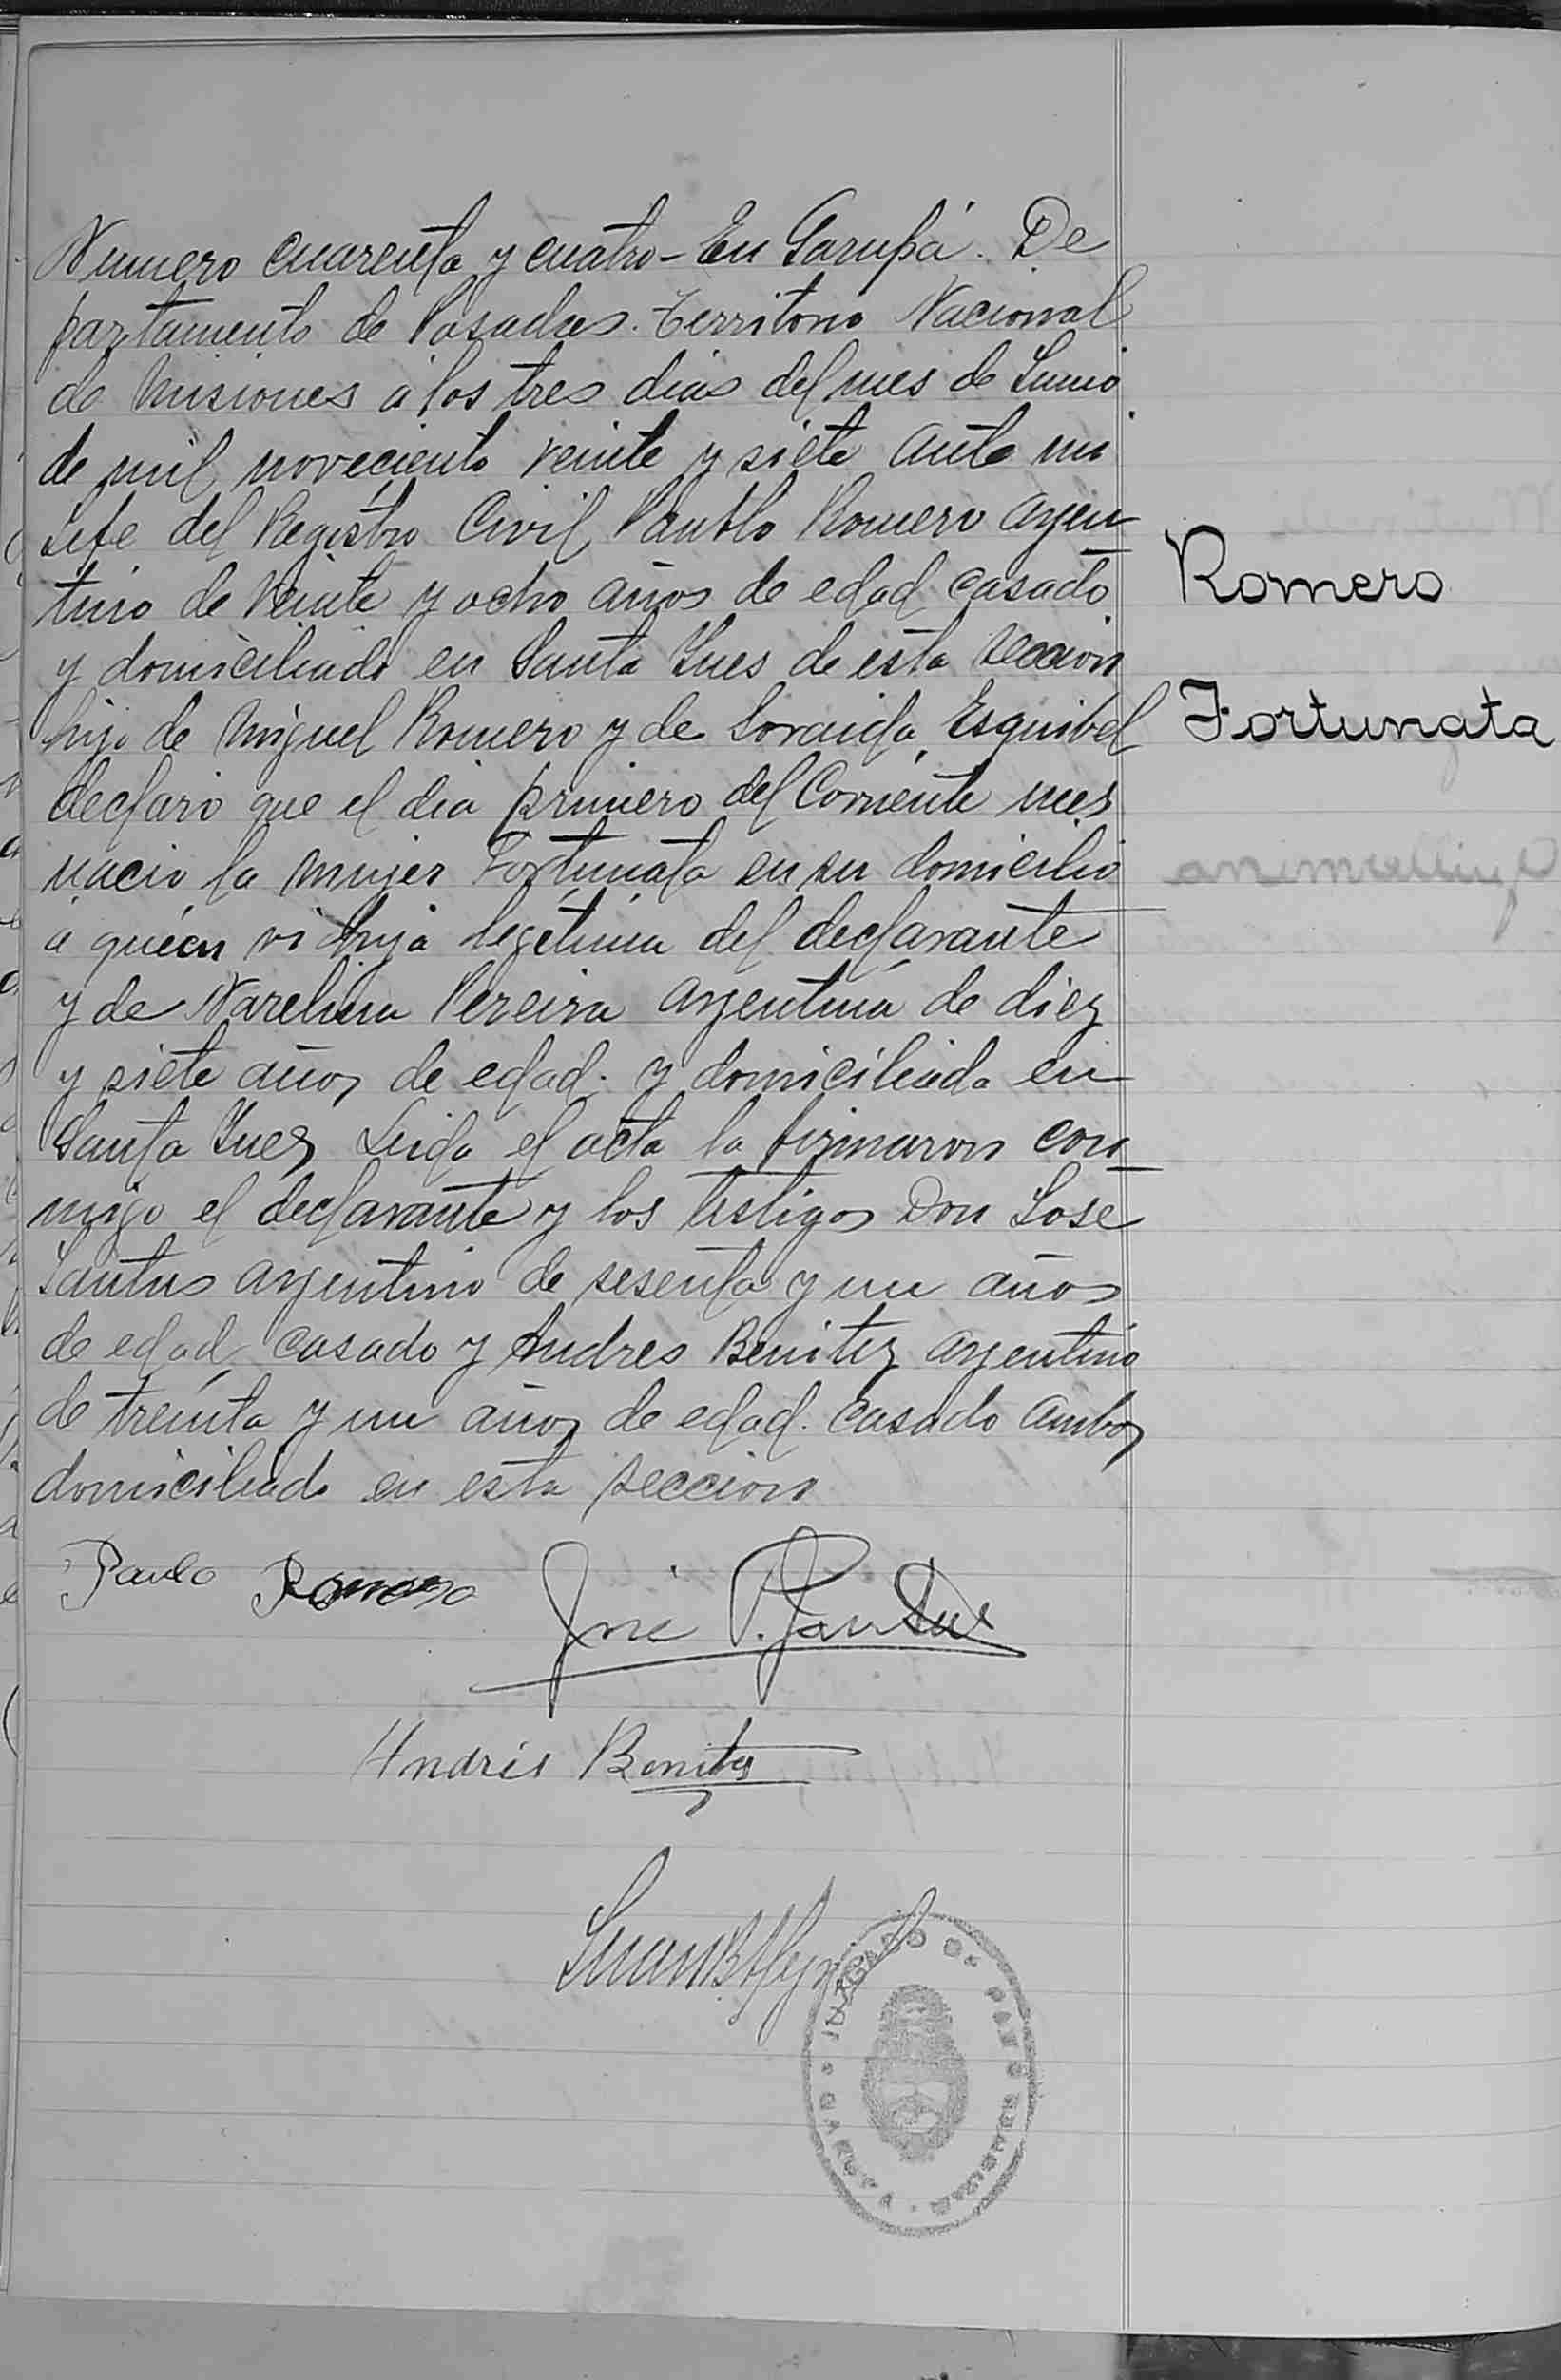 Numero cuarenta y cuatro - En Garupá. De
partamento de Posadas. Territorio Nacional
de Misiones á los tres dias del mes de Junio
de mil noveciento veinte y siete ante mi
Jefe del Registro Civil, Paublo Romero argen
tino de veinte y ocho años de edad casado
y domiciliado en Santa Ynes de esta seccion
hijo de Miguel Romero y de Soraida Esquibel
declaró que el dia primero del Corriente mes
nacio la mujer Fortunata en su domicilio
á quien vi hija legitima del declarante
y de Pereira argentina de diez
y siete años de edad. y domiciliada en
Santa Ynez Leida el acta la firmaron con
migo el declarante y los testigos Don Jose
Santus argentino de sesenta y un años
de edad casado y Andres Benitez argentino
de treinta y un años de edad. casado ambos
domiciliado en esta seccion
Romero
Fortunata
Paulo Romero
José P. Santus
Andrés Benites
Juan B.
JUZGADO DE PAZ
GARUPA